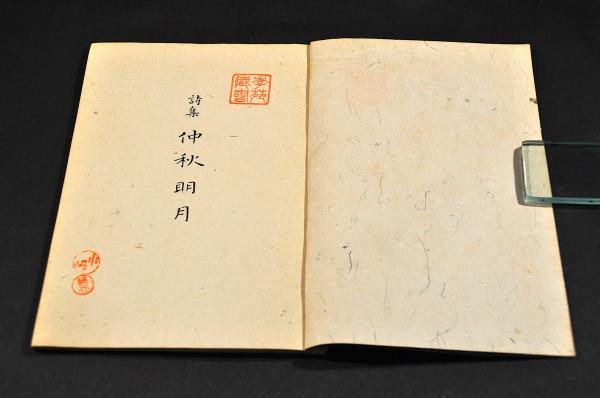 藏書
詩集 仲秋明月